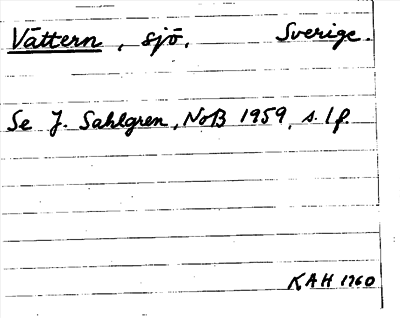 Vättern, sjö, Sverige.
Se J. Sahlgren, NoB 1959, s. 1 f.
KAH 1960